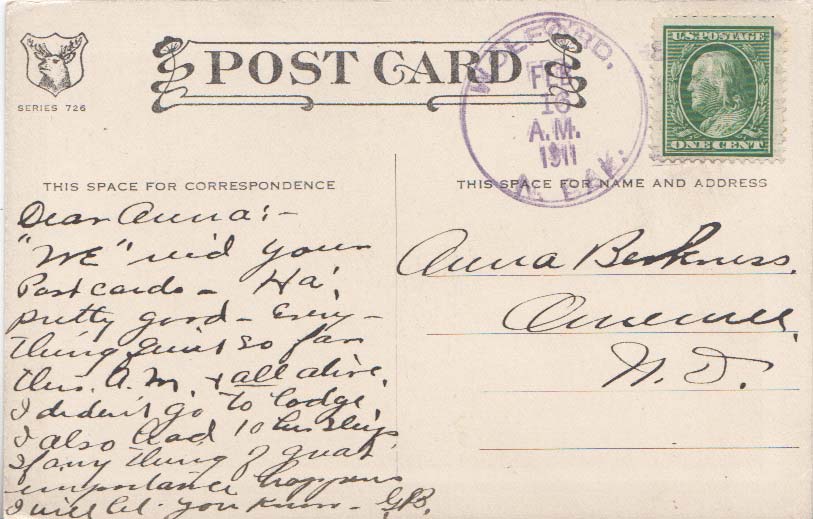 POST CARD
SERIES 726
WILLFORD,
FEB
16
A.M.
1911
N. DAK.
U.S. POSTAGE
ONE CENT
THIS SPACE FOR CORRESPONDENCE
Dear Anna:-
"We" rec'd your
Postcards - Ha!
pretty good - Every-
thing quiet so far
this A.M. & all alive.
I diden't go to lodge,
I also had 10 hrs sleep
If any thing of great
importance happens
I will let you know -
THIS SPACE FOR NAME AND ADDRESS
Anna
N. D.